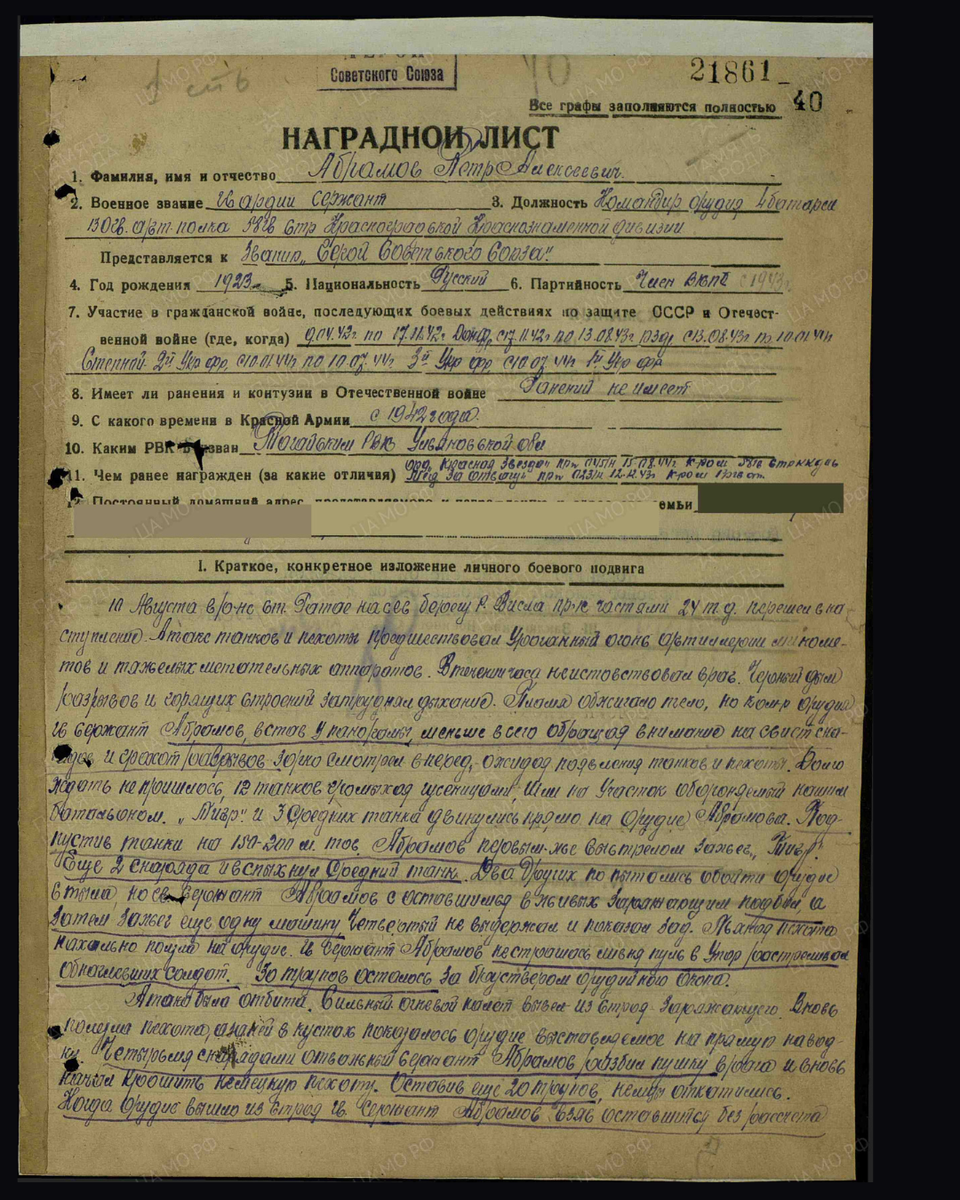 Советского Союза
21861
40
Все графы заполняются полностью 40
НАГРАДНОЙ ЛИСТ
1. Фамилия, имя и отчество Абрамов Петр Алексеевич.
2. Военное звание Гвардии сержант 3. Должность Командир орудия 4 батареи
130 гв. арт. полка 58 гв стр Красноградской Краснознаменной дивизии
Представляется к Званию „Герой Советского Союза"
4. Год рождения 1923 5. Национальность Русский 6. Партийность Член ВКПб с 1943г
7. Участие в гражданской войне, последующих боевых действиях по защите СССР и Отечест-
венной войне (где, когда) по 17.11.42г с 17.11.42г по 13.08.43г с 13.08.43г по 10.01.44г
Степной. 2й Укр фр, с 10.01.44г по 10.07.44г 3й Укр фр с 10.07.44г 1й Укр фр
8. Имеет ли ранения и контузии в Отечественной войне Ранений не имеет
9. С какого времени в Красной Армии с 1942 года
10. Каким РВК призван РВК Ульяновской обл
11. Чем ранее награжден (за какие отличия) орд. Красная Звезда пр. 15.08.44г
Мед За отвагу пр. 12.12.43г
12. Постоянный домашний адрес
I. Краткое, конкретное изложение личного боевого подвига
Августа в р-не ст. Ратае на сев берегу р. Висла пр-к частями 24 т.д. перешел в на
ступление. Атаке танков и пехоты предшествовал ураганный огонь артиллерии миноме-
тов и тяжелых метательных аппаратов. В течении часа неистовствовал враг. Черный дым
разрывов и горящих строений затруднял дыхание. Пламя обжигало тело, но ком-р орудия
гв сержант Абрамов, встав у панорамы, меньше всего обращая внимание на свист сна-
рядов и грохот разрывов зорко смотрел вперед, ожидая появления танков и пехоты. Долго
ждать не пришлось, 12 танков громыхая гусеницами, шли на участок обороняемый нашим
батальоном. „Тигр" и 3 средних танка двинулись прямо на орудие Абрамова. Под-
пустив танки на 150-200 м. тов. Абрамов первым же выстрелом зажег „Тигр".
Еще 2 снаряда и вспыхнул средний танк. Два других попытались обойти орудие
с тыла, но гв. сержант Абрамов с оставшимся в живых заряжающим подбил, а
затем зажег еще одну машину Четвертый не выдержал и показал зад. Пьяная пехота
нахально ползла на орудие. гв сержант Абрамов не страшась ливня пуль в упор расстреливал
обнаглевших солдат. 30 трупов осталось за бруствером орудийного окопа.
Атака была отбита. Сильный огневой налет вывел из строя заряжающего. Вновь
полезла пехота, а за ней в кустах показалось орудие выставляемое на прямую навод-
ку. Четырьмя снарядами отважный сержант Абрамов разбил пушку врага и вновь
начал крошить немецкую пехоту. Оставив еще 20 трупов, немцы откатились.
Когда орудие вышло из строя гв. сержант Абрамов взяв оставшихся без рассчета